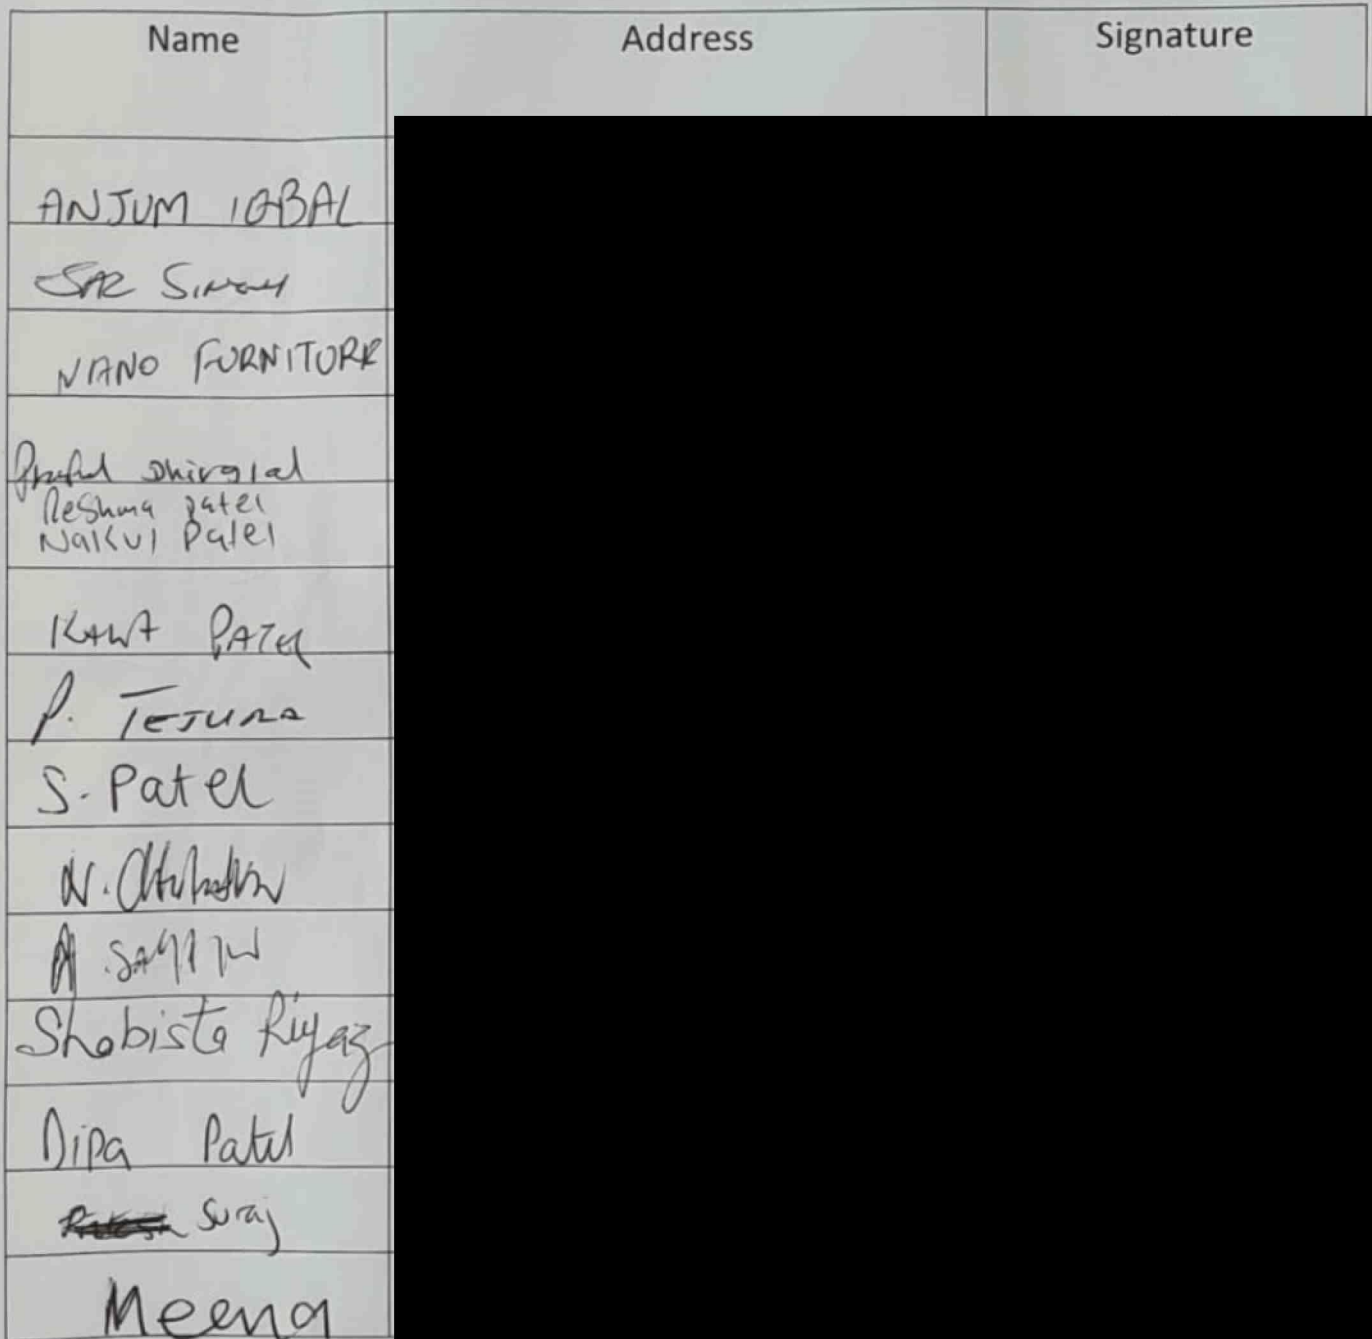 Name Address Signature
ANJUM IQBAL
SAR SINGH
NANO FURNITURE
Praful Dhirajlal
Reshma patel
Nakul Patel
PATEL
P. TEJURA
S. Patel
N.
A.
Shabista Riyaz
Dipa Patel
Suraj
Meena